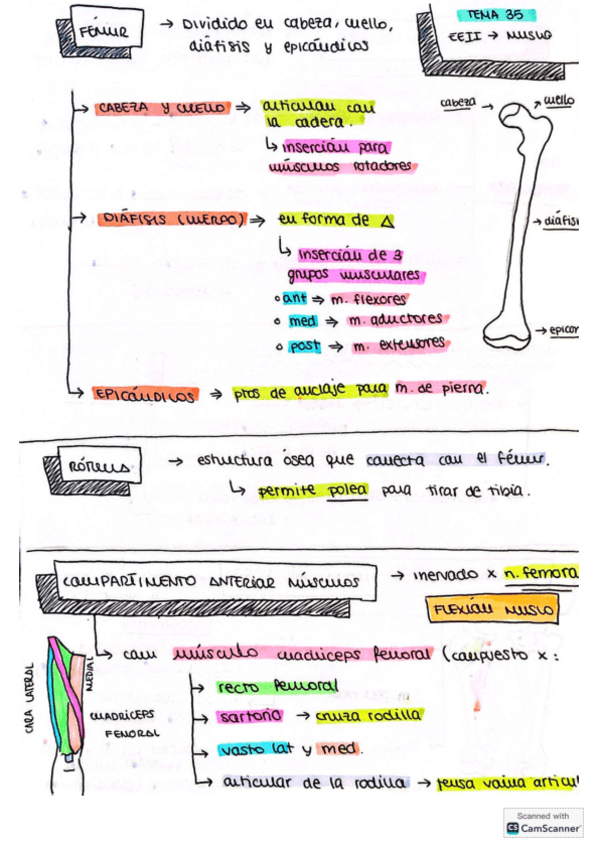 FÉMUR → Dividido en cabeza, cuello,
diáfisis y epicóndilos
TEMA 35
EEII → MUSLO
→ CABEZA Y CUELLO ⇒ articulan con
la cadera.
↳ inserción para
músculos rotadores
cabeza → cuello
→ DIÁFISIS (CUERPO) ⇒ en forma de △
↳ inserción de 3
grupos musculares
∘ ant ⇒ m. flexores
∘ med ⇒ m. aductores
∘ post → m. extensores
→ diáfisi
→ epicon
→ EPICÓNDILOS ⇒ ptos de anclaje para m. de pierna.
RÓTULA → estructura ósea que conecta con el fémur.
↳ permite polea para tirar de tibia.
COMPARTIMENTO ANTERIOR MÚSCULOS → inervado x n. femora
FLEXIÓN MUSLO
↳ con músculo cuadriceps femoral (compuesto x:
→ recto femoral
→ sartorio → cruza rodilla
→ vasto lat y med.
→ articular de la rodilla → tensa vaina articul
CARA LATERAL
MEDIAL
CUADRICEPS
FEMORAL
Scanned with
CS CamScanner